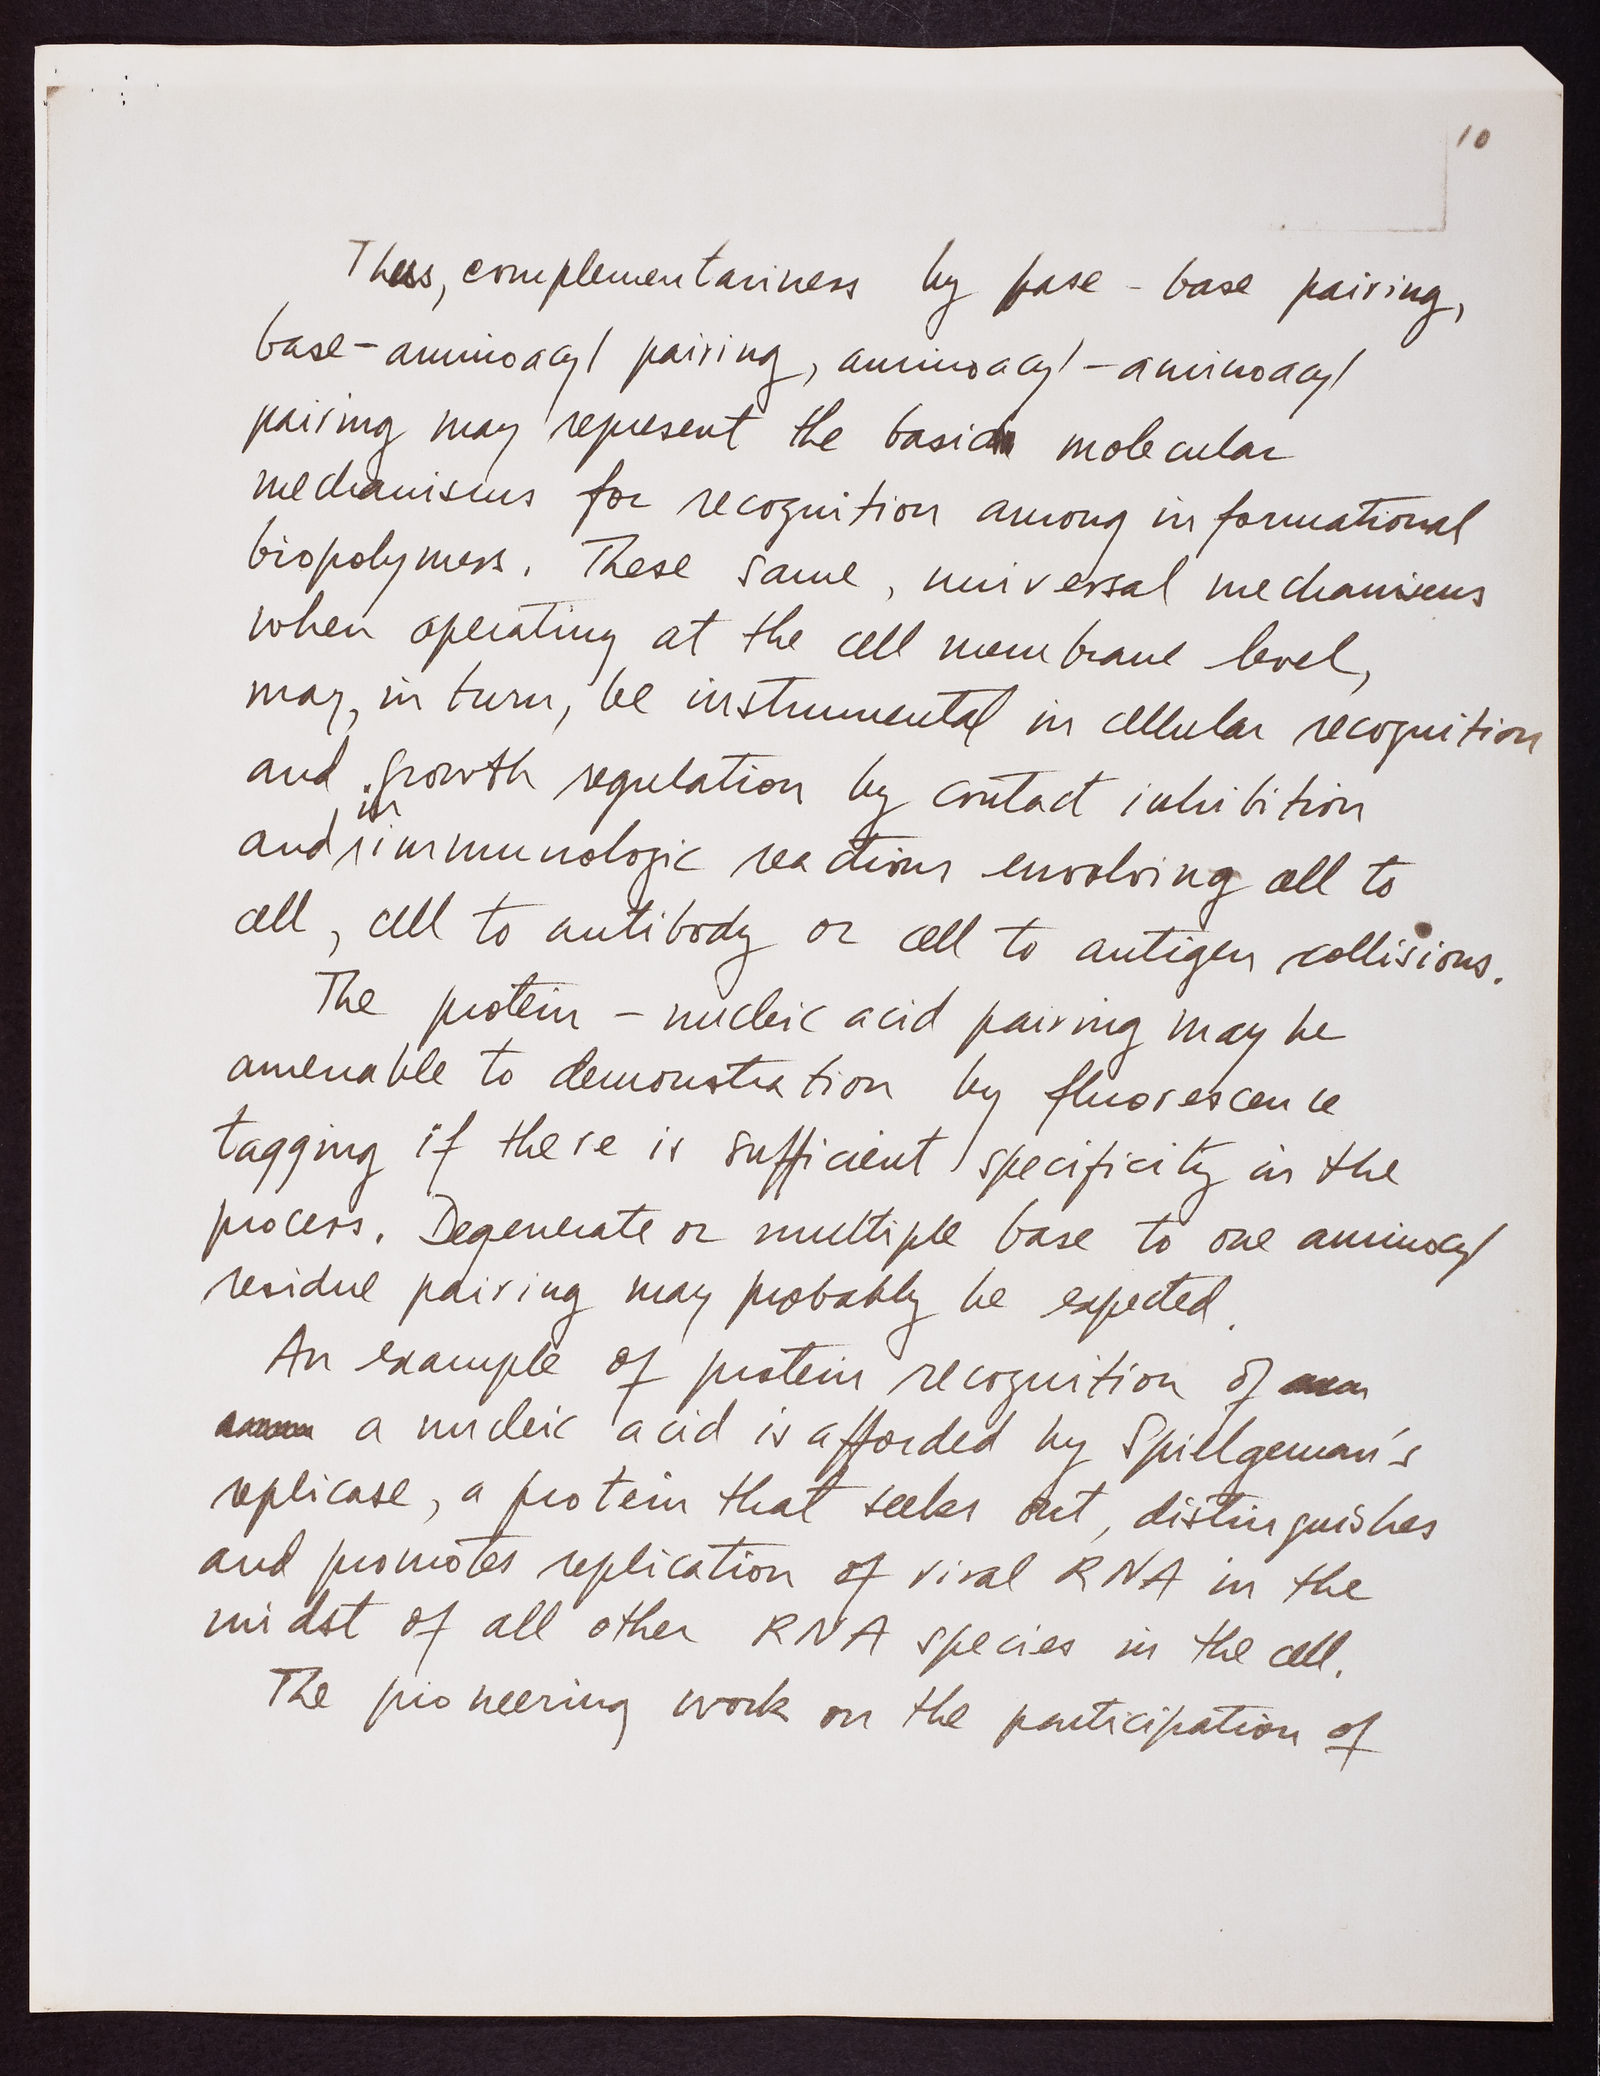 10
Thus, complementariness by base - base pairing,
base-aminoacyl pairing, aminoacyl-aminoacyl
pairing may represent the basic molecular
mechanisms for recognition among informational
biopolymers. These same, universal mechanisms
when operating at the cell membrane level,
may, in turn, be instrumental in cellular recognition
and growth regulation by contact inhibition
and in immunologic reactions envolving cell to
cell, cell to antibody or cell to antigen collisions.
The protein - nucleic acid pairing may be
amenable to demonstration by fluorescence
tagging if there is sufficient specificity in the
process. Degenerate or multiple base to one aminocyl
residue pairing may probably be expected.
An example of protein recognition of
a nucleic acid is afforded by Spielgeman's
replicase, a protein that seeks out, distinguishes
and promotes replication of viral RNA in the
midst of all other RNA species in the cell.
The pioneering work on the participation of